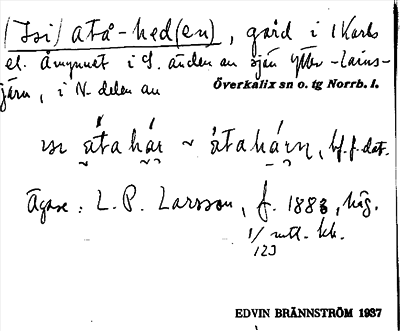 (Isi) atå-hed(en), gård i 1 Karls
el. Åmynnet i S. änden av sjön Ytter-Lains-
järv, i N. delen av
Överkalix sn o. tg Norrb. l.
ɪsɪ átahár ~ átahárn, bf. f. dat.
Ägare: L. P. Larsson, f. 1883, häg.
1/123 mtl. kr.
EDVIN BRÄNNSTRÖM 1937